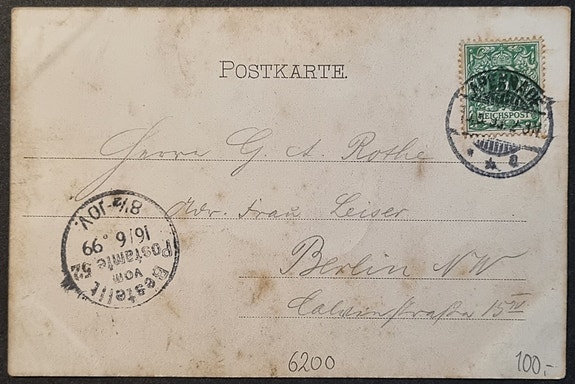 POSTKARTE.
REICHSPOST
Herrn G. A. Rothe
Adr. Frau Leiser
Berlin NW
Calvinstraße 15 IV
Bestellt
vom
Postamte 52
16/6 99
8½-10V.
6200
100,-